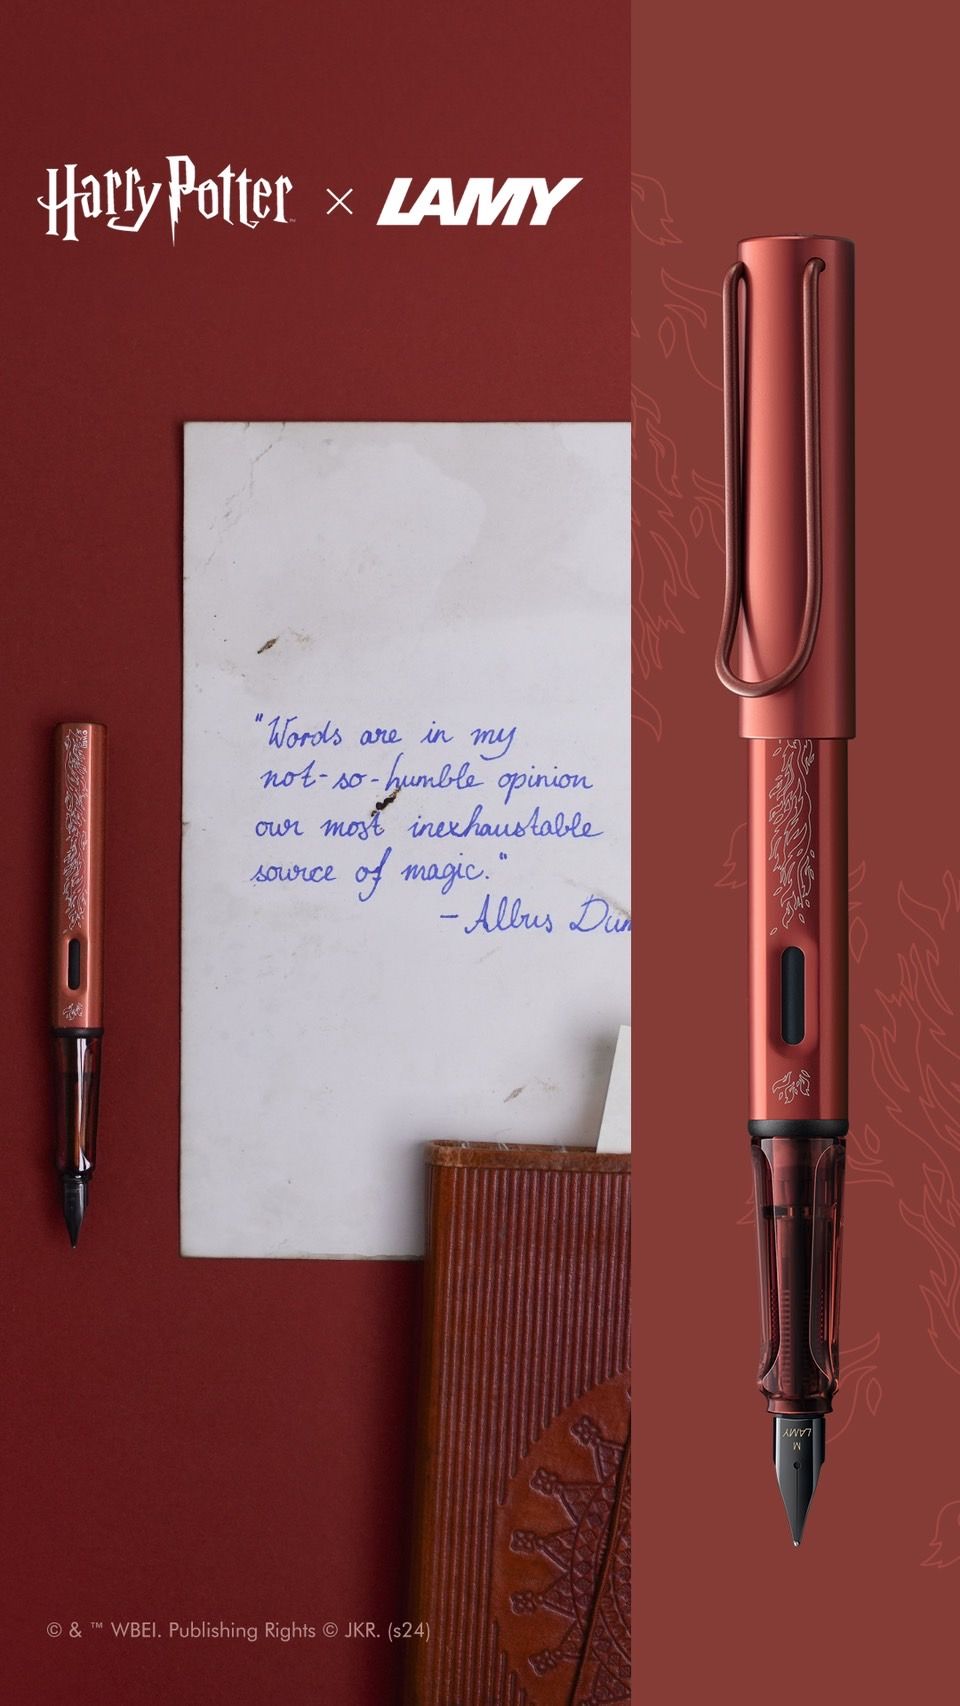 Harry Potter × LAMY
"Words are in my
not-so-humble opinion
our most inexhaustable
source of magic."
- Albus Dum
LAMY
M
© & ™ WBEI. Publishing Rights © JKR. (s24)